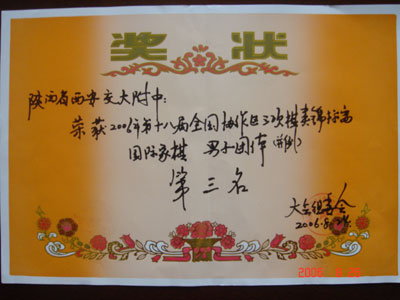 奖状
陕西省西安交大附中:
荣获2006年第十八届全国协作区三项棋类锦标赛
国际象棋 男子团体(并列)
第三名
大会组委会
2006.8
2006